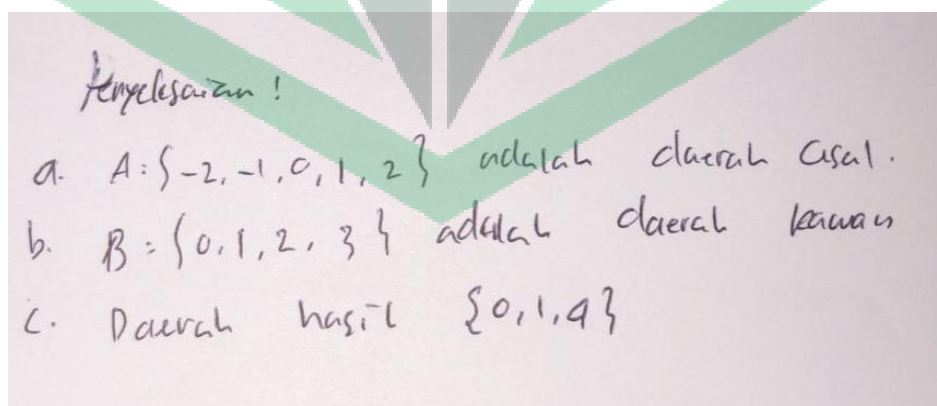 Penyelesaian !
a. A = {-2, -1, 0, 1, 2} adalah daerah asal.
b. B = {0, 1, 2, 3} adalah daerah kawan
c. Daerah hasil {0, 1, 4}